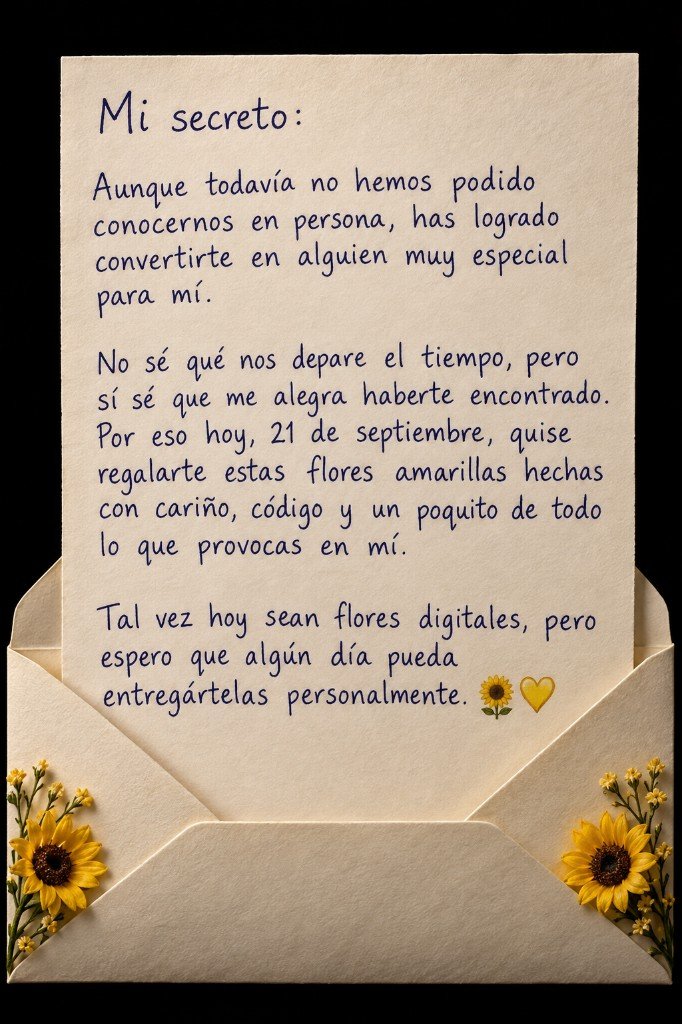 Mi secreto:
Aunque todavía no hemos podido
conocernos en persona, has logrado
convertirte en alguien muy especial
para mí.
No sé qué nos depare el tiempo, pero
sí sé que me alegra haberte encontrado.
Por eso hoy, 21 de septiembre, quise
regalarte estas flores amarillas hechas
con cariño, código y un poquito de todo
lo que provocas en mí.
Tal vez hoy sean flores digitales, pero
espero que algún día pueda
entregártelas personalmente. 🌻💛